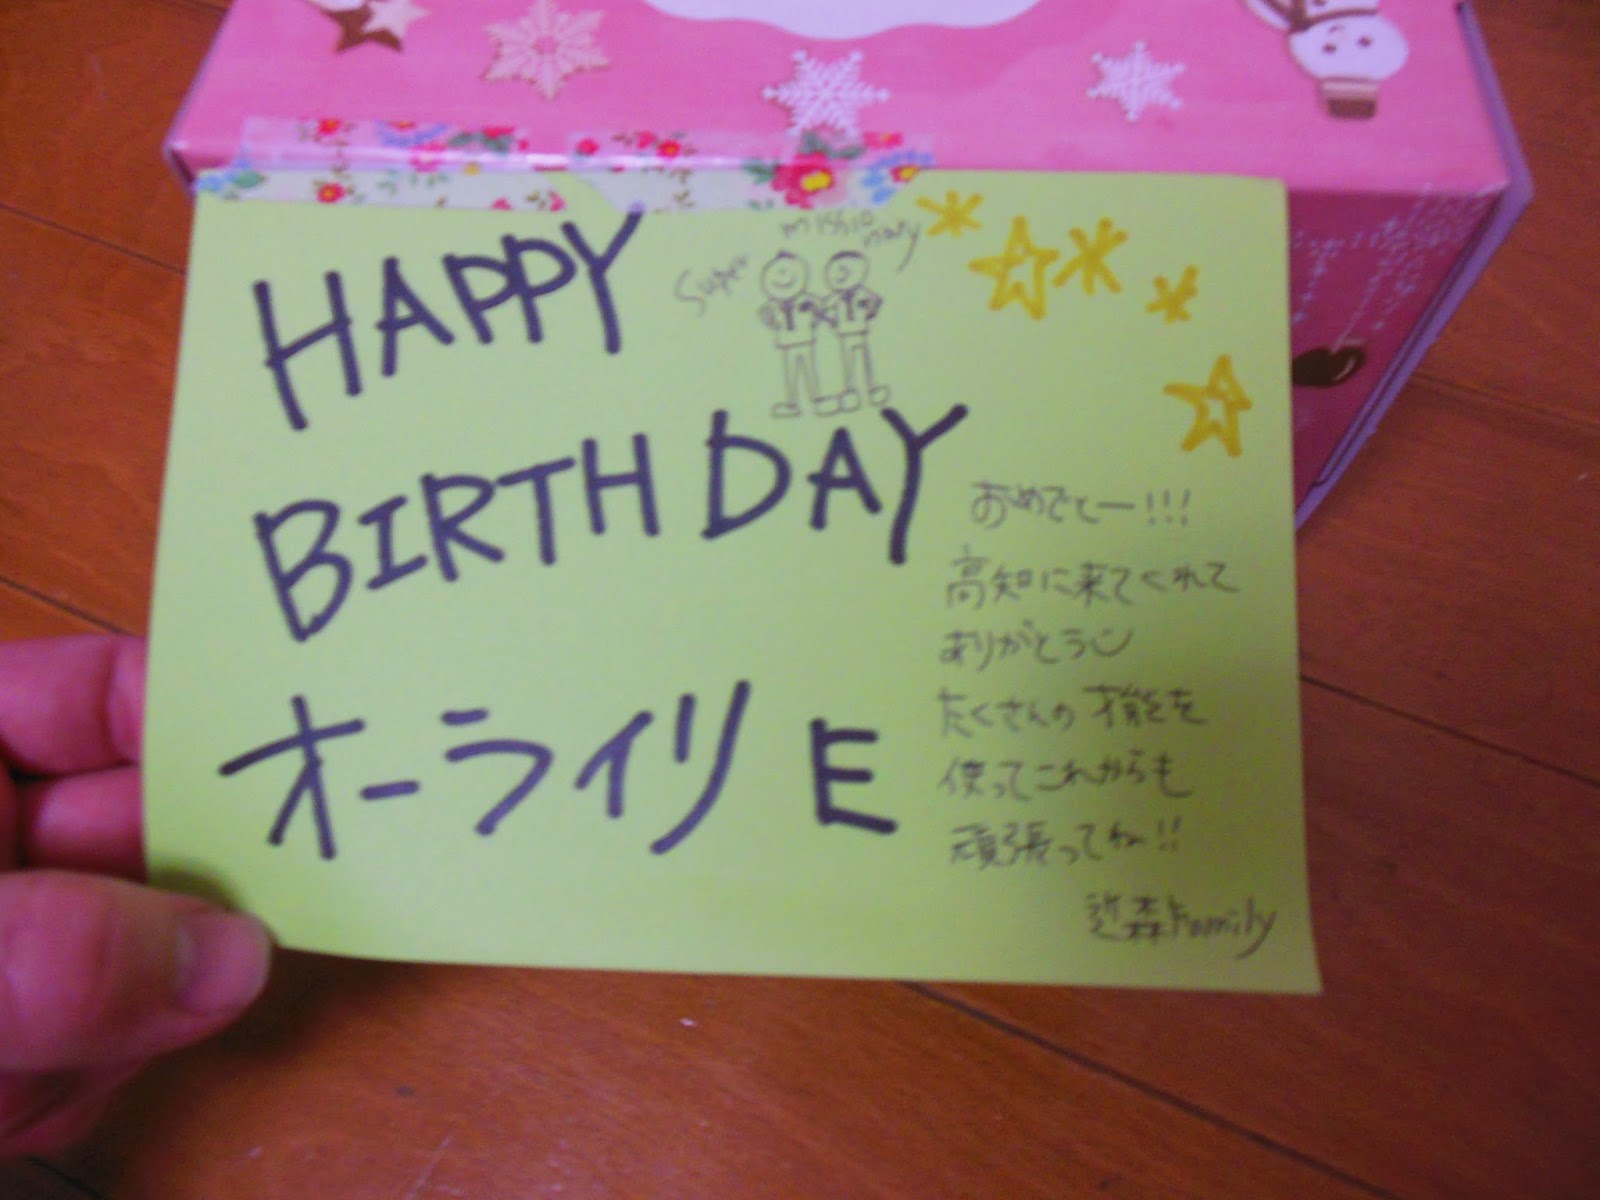 HAPPY
Super missionary
BIRTHDAY
オーライリ E
おめでとー!!!
高知に来てくれて
ありがとう
たくさんの才能を
使ってこれからも
頑張ってね!!
近森Family